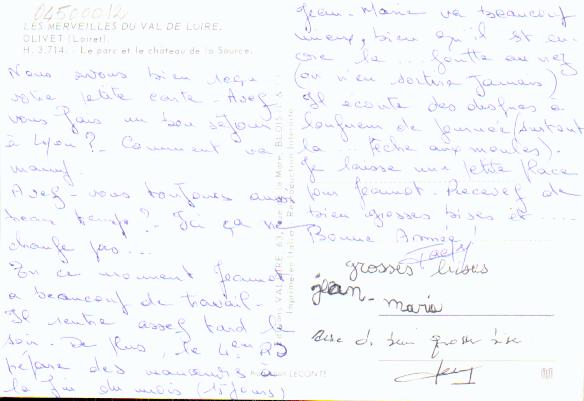 045000/2
LES MERVEILLES DU VAL DE LOIRE.
OLIVET (Loiret).
H. 3.714. - Le parc et le château de la Source.
Nous avons bien reçu
votre petite carte. Avez
vous fais un bon séjour
à Lyon? - Comment va
mamy.
Avez-vous toujours aussi
beau temps? - Ici ça ne
change pas...
En ce moment Jeannot
a beaucoup de travail.
Il rentre assez tard le
soir. De plus, le 4ème RD
prépare des manœuvres à
la fin du mois (15 jours)
Jean-Marie va beaucoup
mieux, bien qu'il est en-
core la ... goutte au nez
(on n'en sortira jamais)
Il écoute des disques à
longueur de journée (surtout
la ... Pêche aux moules).
Je laisse une petite place
pour Jeannot. Recevez de
bien grosses bises et ...
Bonne Année!
grosses bises
jean-marie
grosse bise
LECONTE